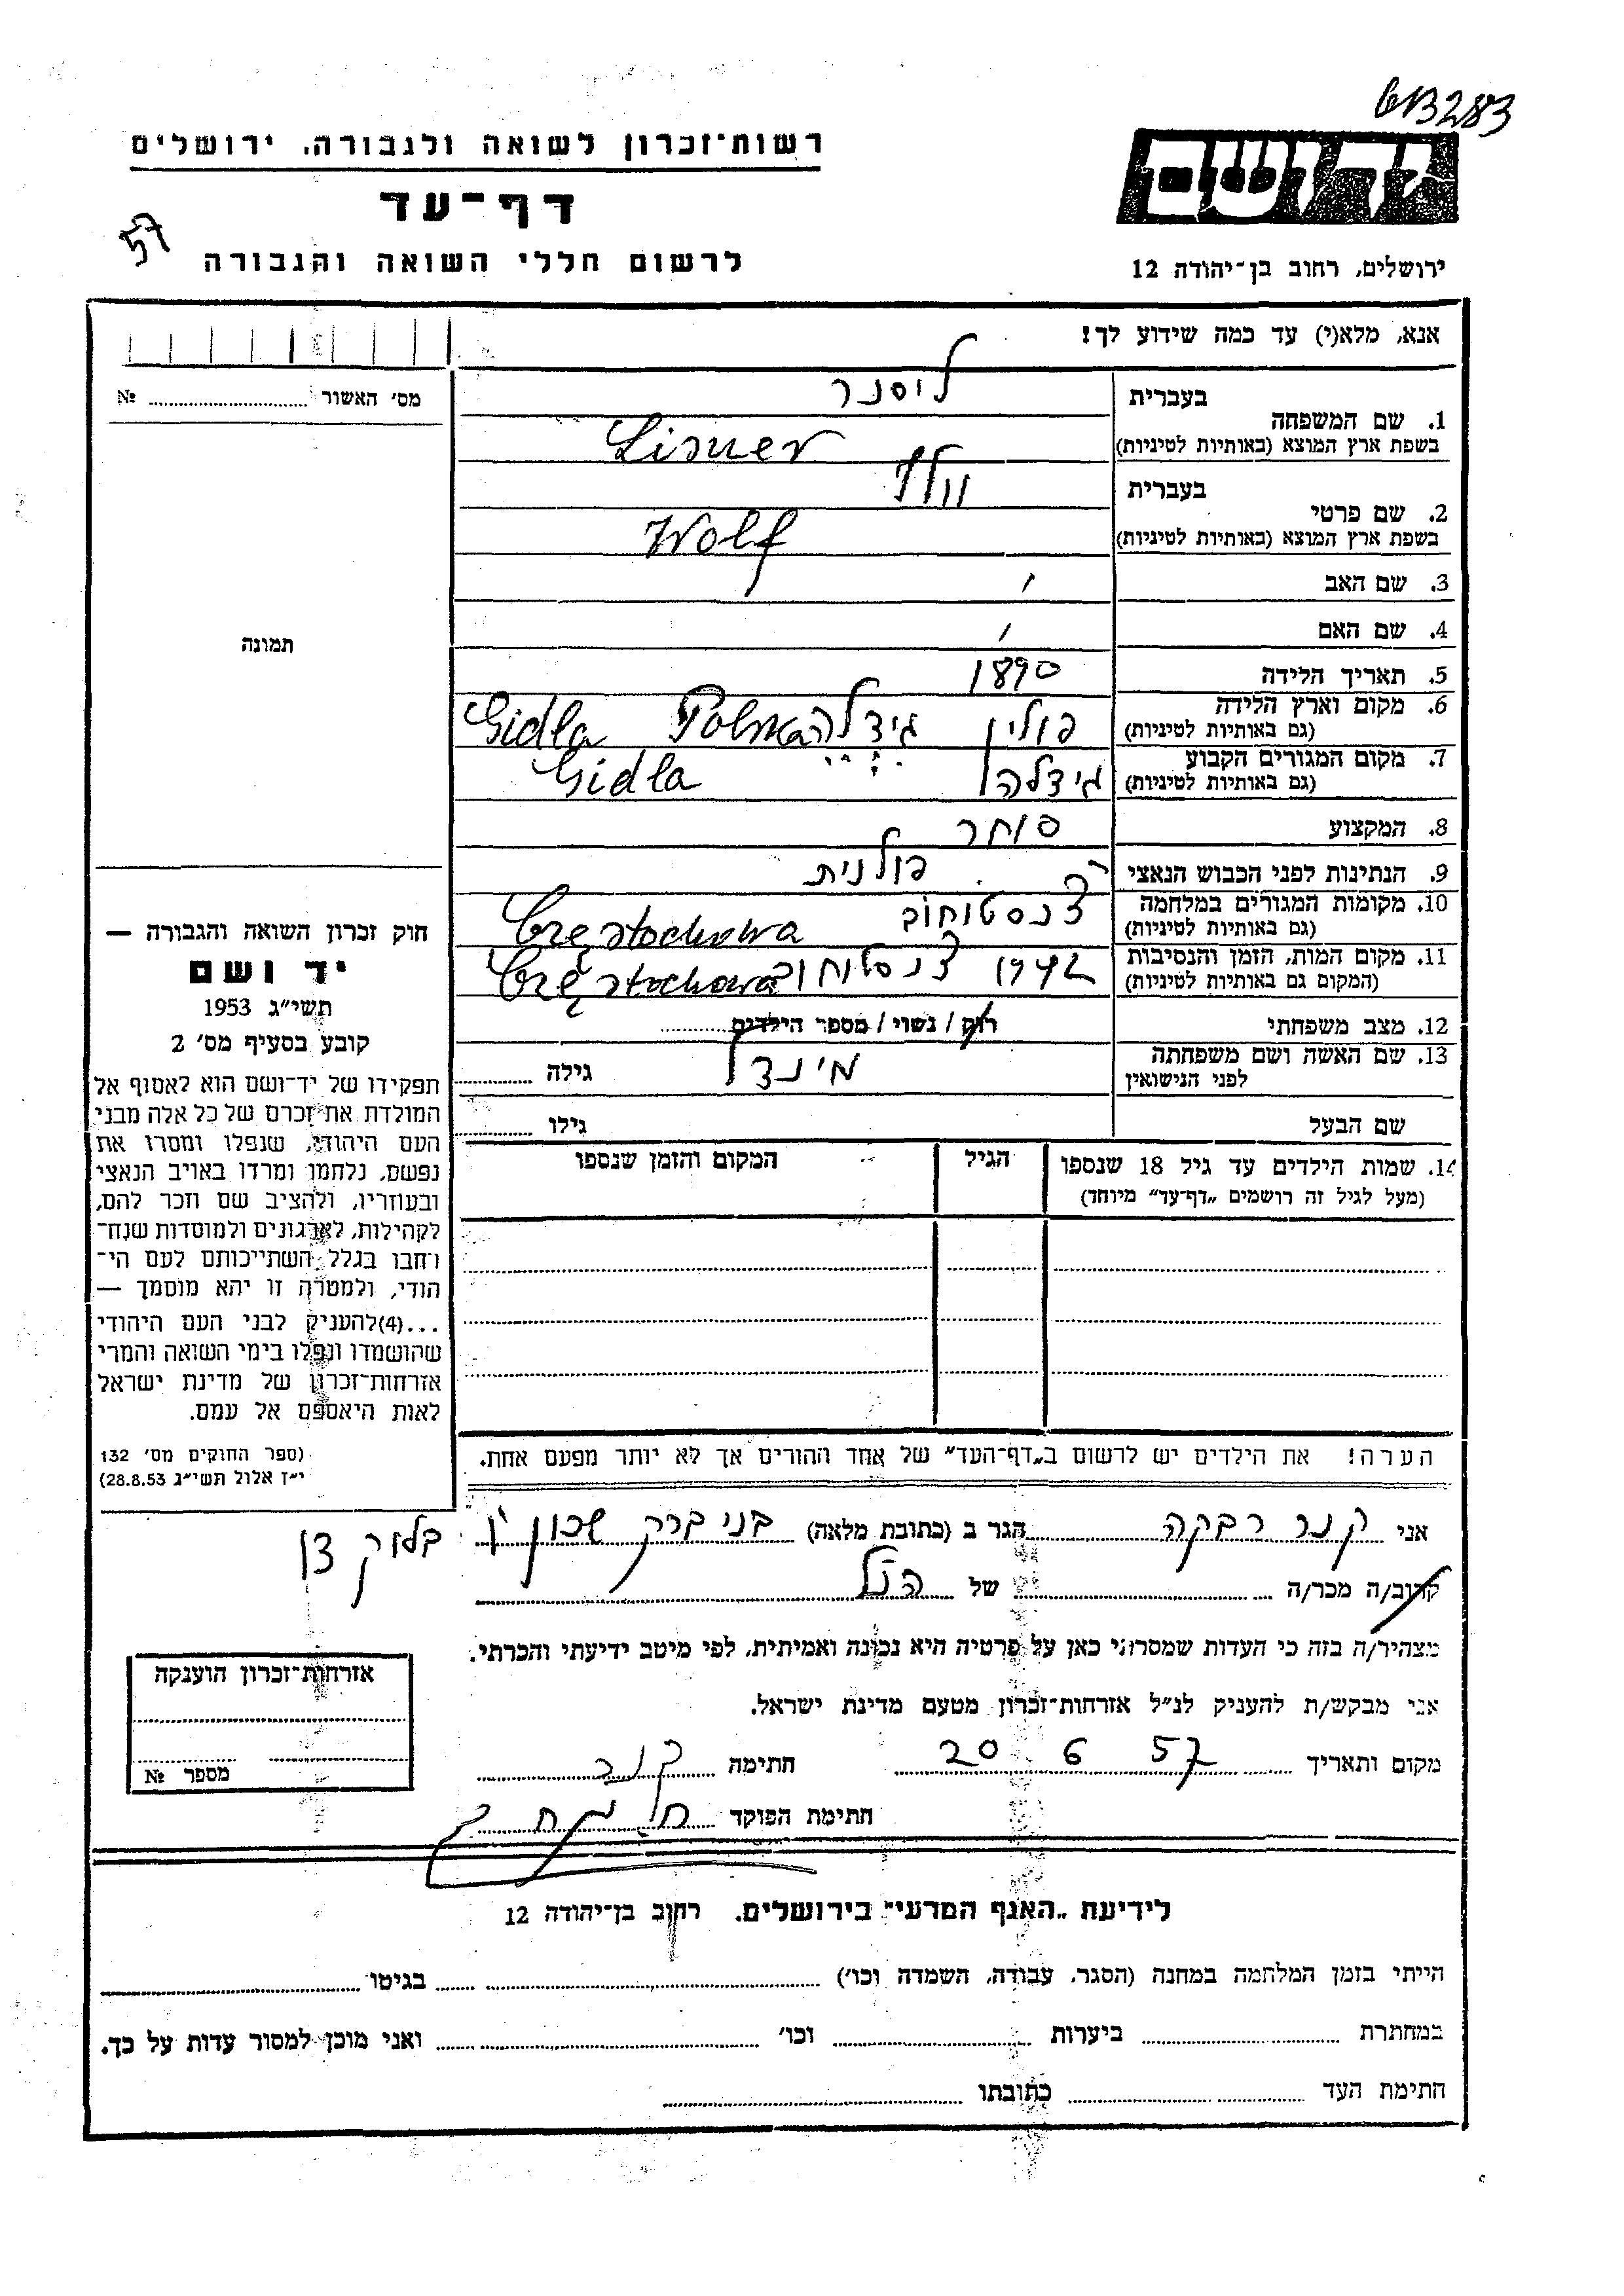 6B283
רשות־זכרון לשואה ולגבורה, ירושלים
דף־עד
57
לרשום חללי השואה והגבורה
יד ושם
ירושלים, רחוב בן־יהודה 12
אנא, מלא(י) עד כמה שידוע לך!
מס׳ האשור № 
בעברית ליסנר
1. שם המשפחה
בשפת ארץ המוצא (באותיות לטיניות) Lisner
בעברית וולף
2. שם פרטי
בשפת ארץ המוצא (באותיות לטיניות) Wolf
3. שם האב
4. שם האם
תמונה
5. תאריך הלידה 1890
6. מקום וארץ הלידה פולין גידלה Polska Gidla
(גם באותיות לטיניות)
7. מקום המגורים הקבוע גידלה Gidla
(גם באותיות לטיניות)
8. המקצוע סוחר
9. הנתינות לפני הכבוש הנאצי פולנית
10. מקומות המגורים במלחמה צ׳נסטוחוב Częstochowa
(גם באותיות לטיניות)
11. מקום המות, הזמן והנסיבות 1942 צ׳נסטוחוב Częstochowa
(המקום גם באותיות לטיניות)
12. מצב משפחתי רוק / נשוי / מספר הילדים
13. שם האשה ושם משפחתה מינדל גילה
לפני הנישואין
שם הבעל גילו
14. שמות הילדים עד גיל 18 שנספו הגיל המקום והזמן שנספו
(מעל לגיל זה רושמים „דף־עד״ מיוחד)
הערה! את הילדים יש לרשום ב„דף־העד״ של אחד ההורים אך לא יותר מפעם אחת.
חוק זכרון השואה והגבורה —
יד ושם
תשי״ג 1953
קובע בסעיף מס׳ 2
תפקידו של יד־ושם הוא לאסוף אל
המולדת את זכרם של כל אלה מבני
העם היהודי, שנפלו ומסרו את
נפשם, נלחמו ומרדו באויב הנאצי
ובעוזריו, ולהציב שם וזכר להם,
לקהילות, לארגונים ולמוסדות שנח־
רחבו בגלל השתייכותם לעם הי־
הודי, ולמטרה זו יהא מוסמך —
...(4)להעניק לבני העם היהודי
שהושמדו ונפלו בימי השואה והמרי
אזרחות־זכרון של מדינת ישראל
לאות היאספם אל עמם.
(ספר החוקים מס׳ 132
י״ז אלול תשי״ג 28.8.53)
אני קנר רבקה הגר ב (כתובת מלאה) בני ברק שכון ו׳ בלוק
קרוב/ה מכר/ה של הנ״ל
מצהיר/ה בזה כי העדות שמסרתי כאן על פרטיה היא נכונה ואמיתית, לפי מיטב ידיעתי והכרתי.
אני מבקש/ת להעניק לנ״ל אזרחות־זכרון מטעם מדינת ישראל.
מקום ותאריך 20 6 57 חתימה קנר
חתימת הפוקד
אזרחות־זכרון הוענקה
מספר №
לידיעת „האגף המדעי״ בירושלים, רחוב בן־יהודה 12
הייתי בזמן המלחמה במחנה (הסגר, עבודה, השמדה וכו׳) בגיטו
במחתרת ביערות וכו׳ ואני מוכן למסור עדות על כך.
חתימת העד כתובתו